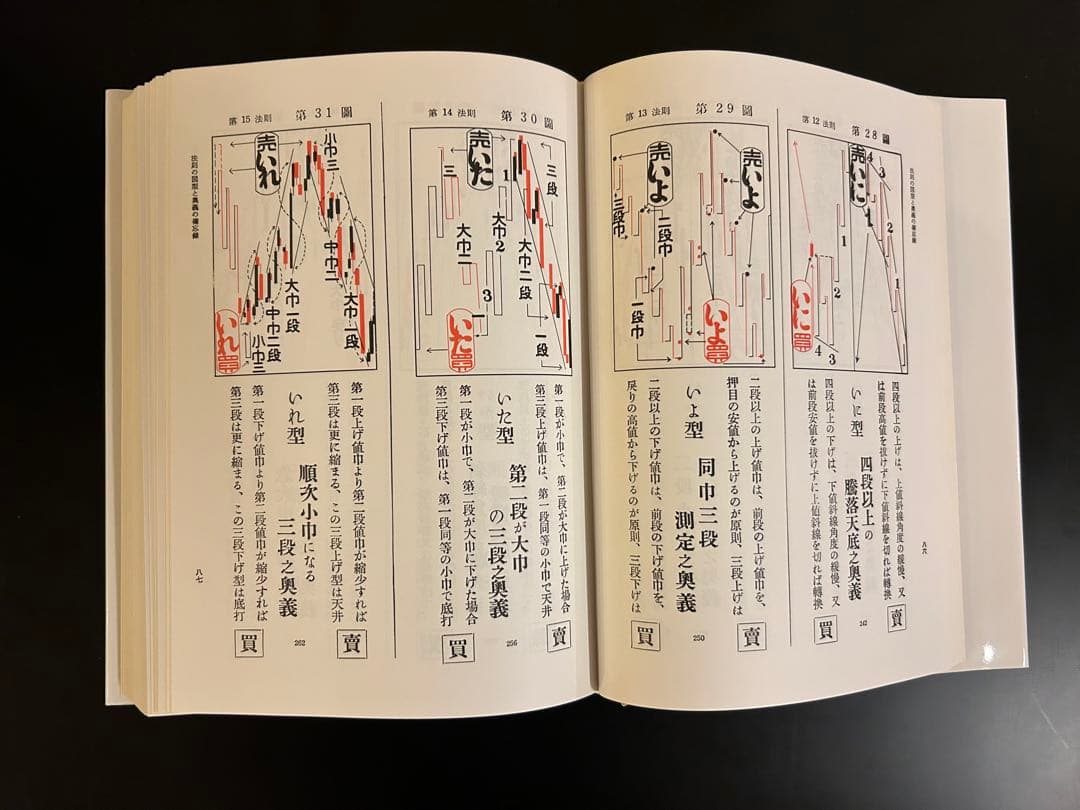 法則の図型と奥義の備忘録
八六
第12法則
第28圖
売いに
4
3
1
2
1
1
2
3
4
いに買
四段以上の上げは、上値斜線角度の緩慢、又
は前段高値を抜けずに下値斜線を切れば轉換
賣
いに型 四段以上の
騰落天底之奥義
242
四段以上の下げは、下値斜線角度の緩慢、又
は前段安値を抜けずに上値斜線を切れば轉換
買
第13法則
第29圖
売いよ
売いよ
三段巾
二段巾
一段巾
いよ買
二段以上の上げ値巾は、前段の上げ値巾を、
押目の安値から上げるのが原則、三段上げは
賣
いよ型 同巾三段
測定之奥義
250
二段以上の下げ値巾は、前段の下げ値巾を、
戻りの高値から下げるのが原則、三段下げは
買
第14法則
第30圖
売いた
三段
三
1
大巾2
大巾二
大巾二段
3
一
一段
いた買
第一段が小巾で、第二段が大巾に上げた場合
第三段上げ値巾は、第一段同等の小巾で天井
賣
いた型 第二段が大巾
の三段之奥義
256
第一段が小巾で、第二段が大巾に下げた場合
第三段下げ値巾は、第一段同等の小巾で底打
買
第15法則
第31圖
売いれ
小巾三
中巾二
大巾一段
大巾一段
中巾二段
小巾三
いれ買
第一段上げ値巾より第二段値巾が縮少すれば
第三段は更に縮まる、この三段上げ型は天井
賣
いれ型 順次小巾になる
三段之奥義
262
第一段下げ値巾より第二段値巾が縮少すれば
第三段は更に縮まる、この三段下げ型は底打
買
法則の図型と奥義の備忘録
八七